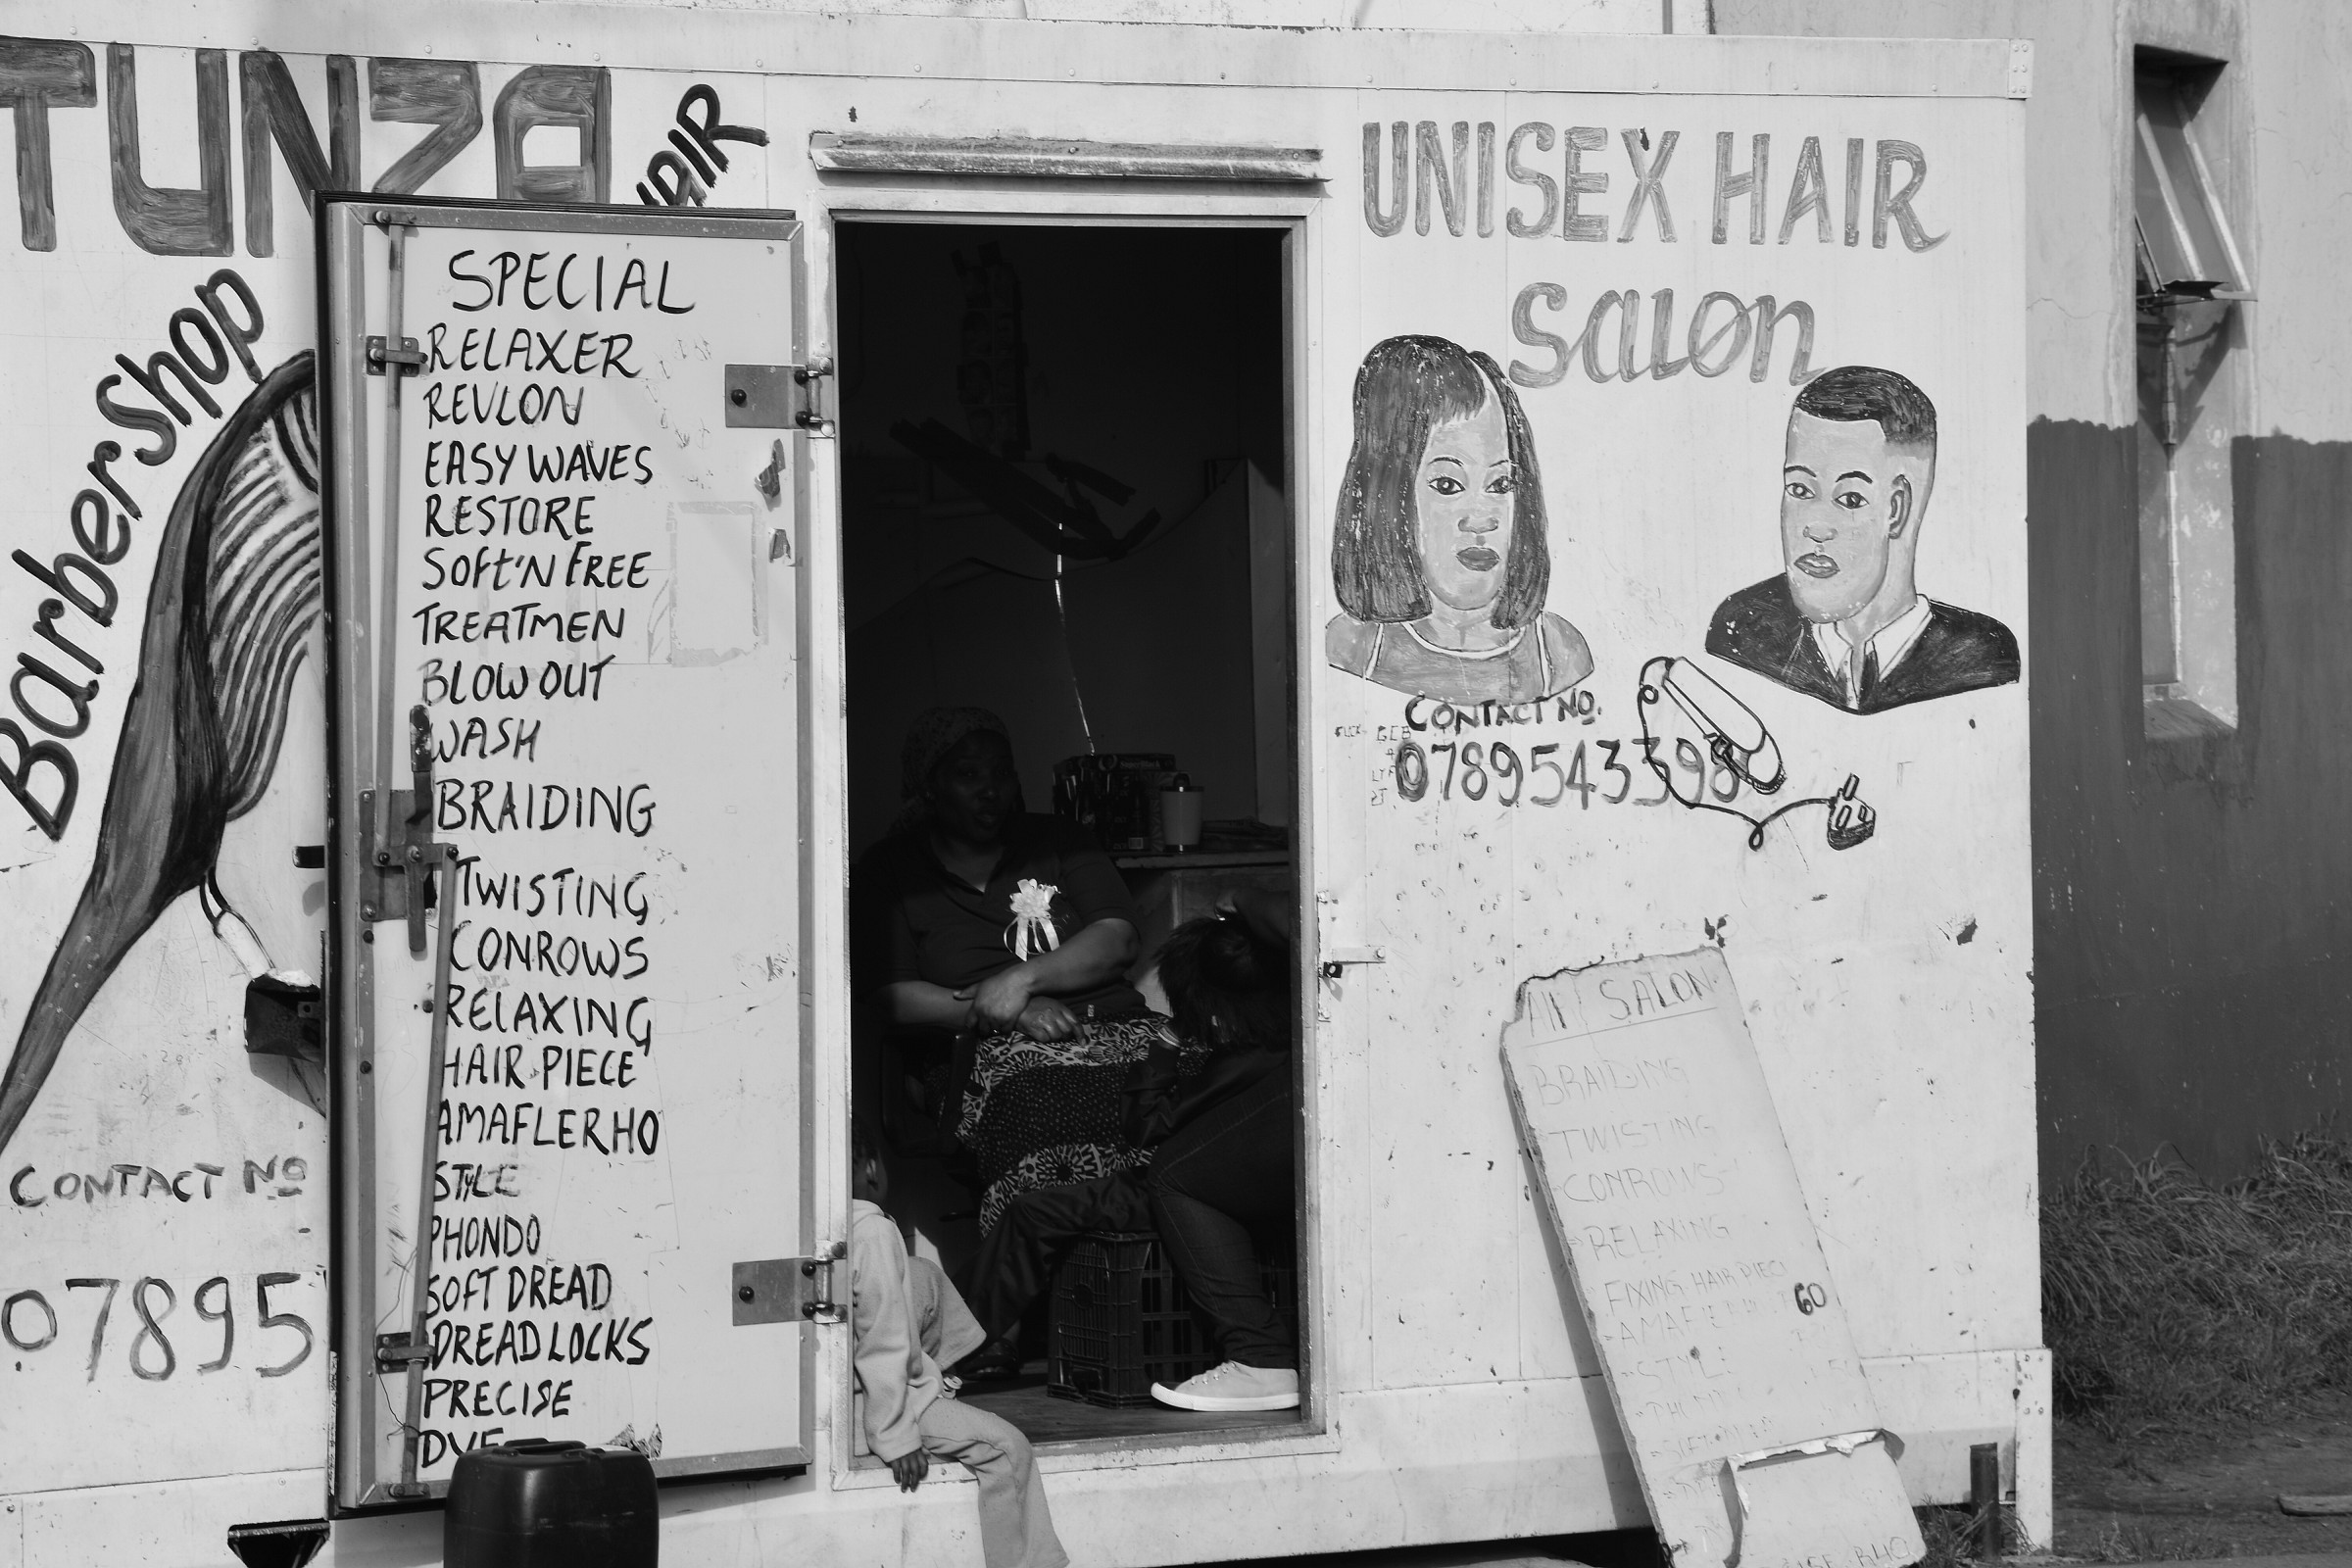 TUNZA
HAIR
Barber Shop
CONTACT NO
07895
SPECIAL
RELAXER
REVLON
EASY WAVES
RESTORE
SOFT'N FREE
TREATMEN
BLOW OUT
WASH
BRAIDING
TWISTING
CONROWS
RELAXING
HAIR PIECE
AMAFLERHO
STYLE
PHONDO
SOFT DREAD
DREADLOCKS
PRECISE
DYE
UNISEX HAIR
Salon
CONTACT NO.
0789543398
SALON
BRAIDING
TWISTING
CONROWS
RELAXING
FIXING HAIR PIECE
60
STYLE